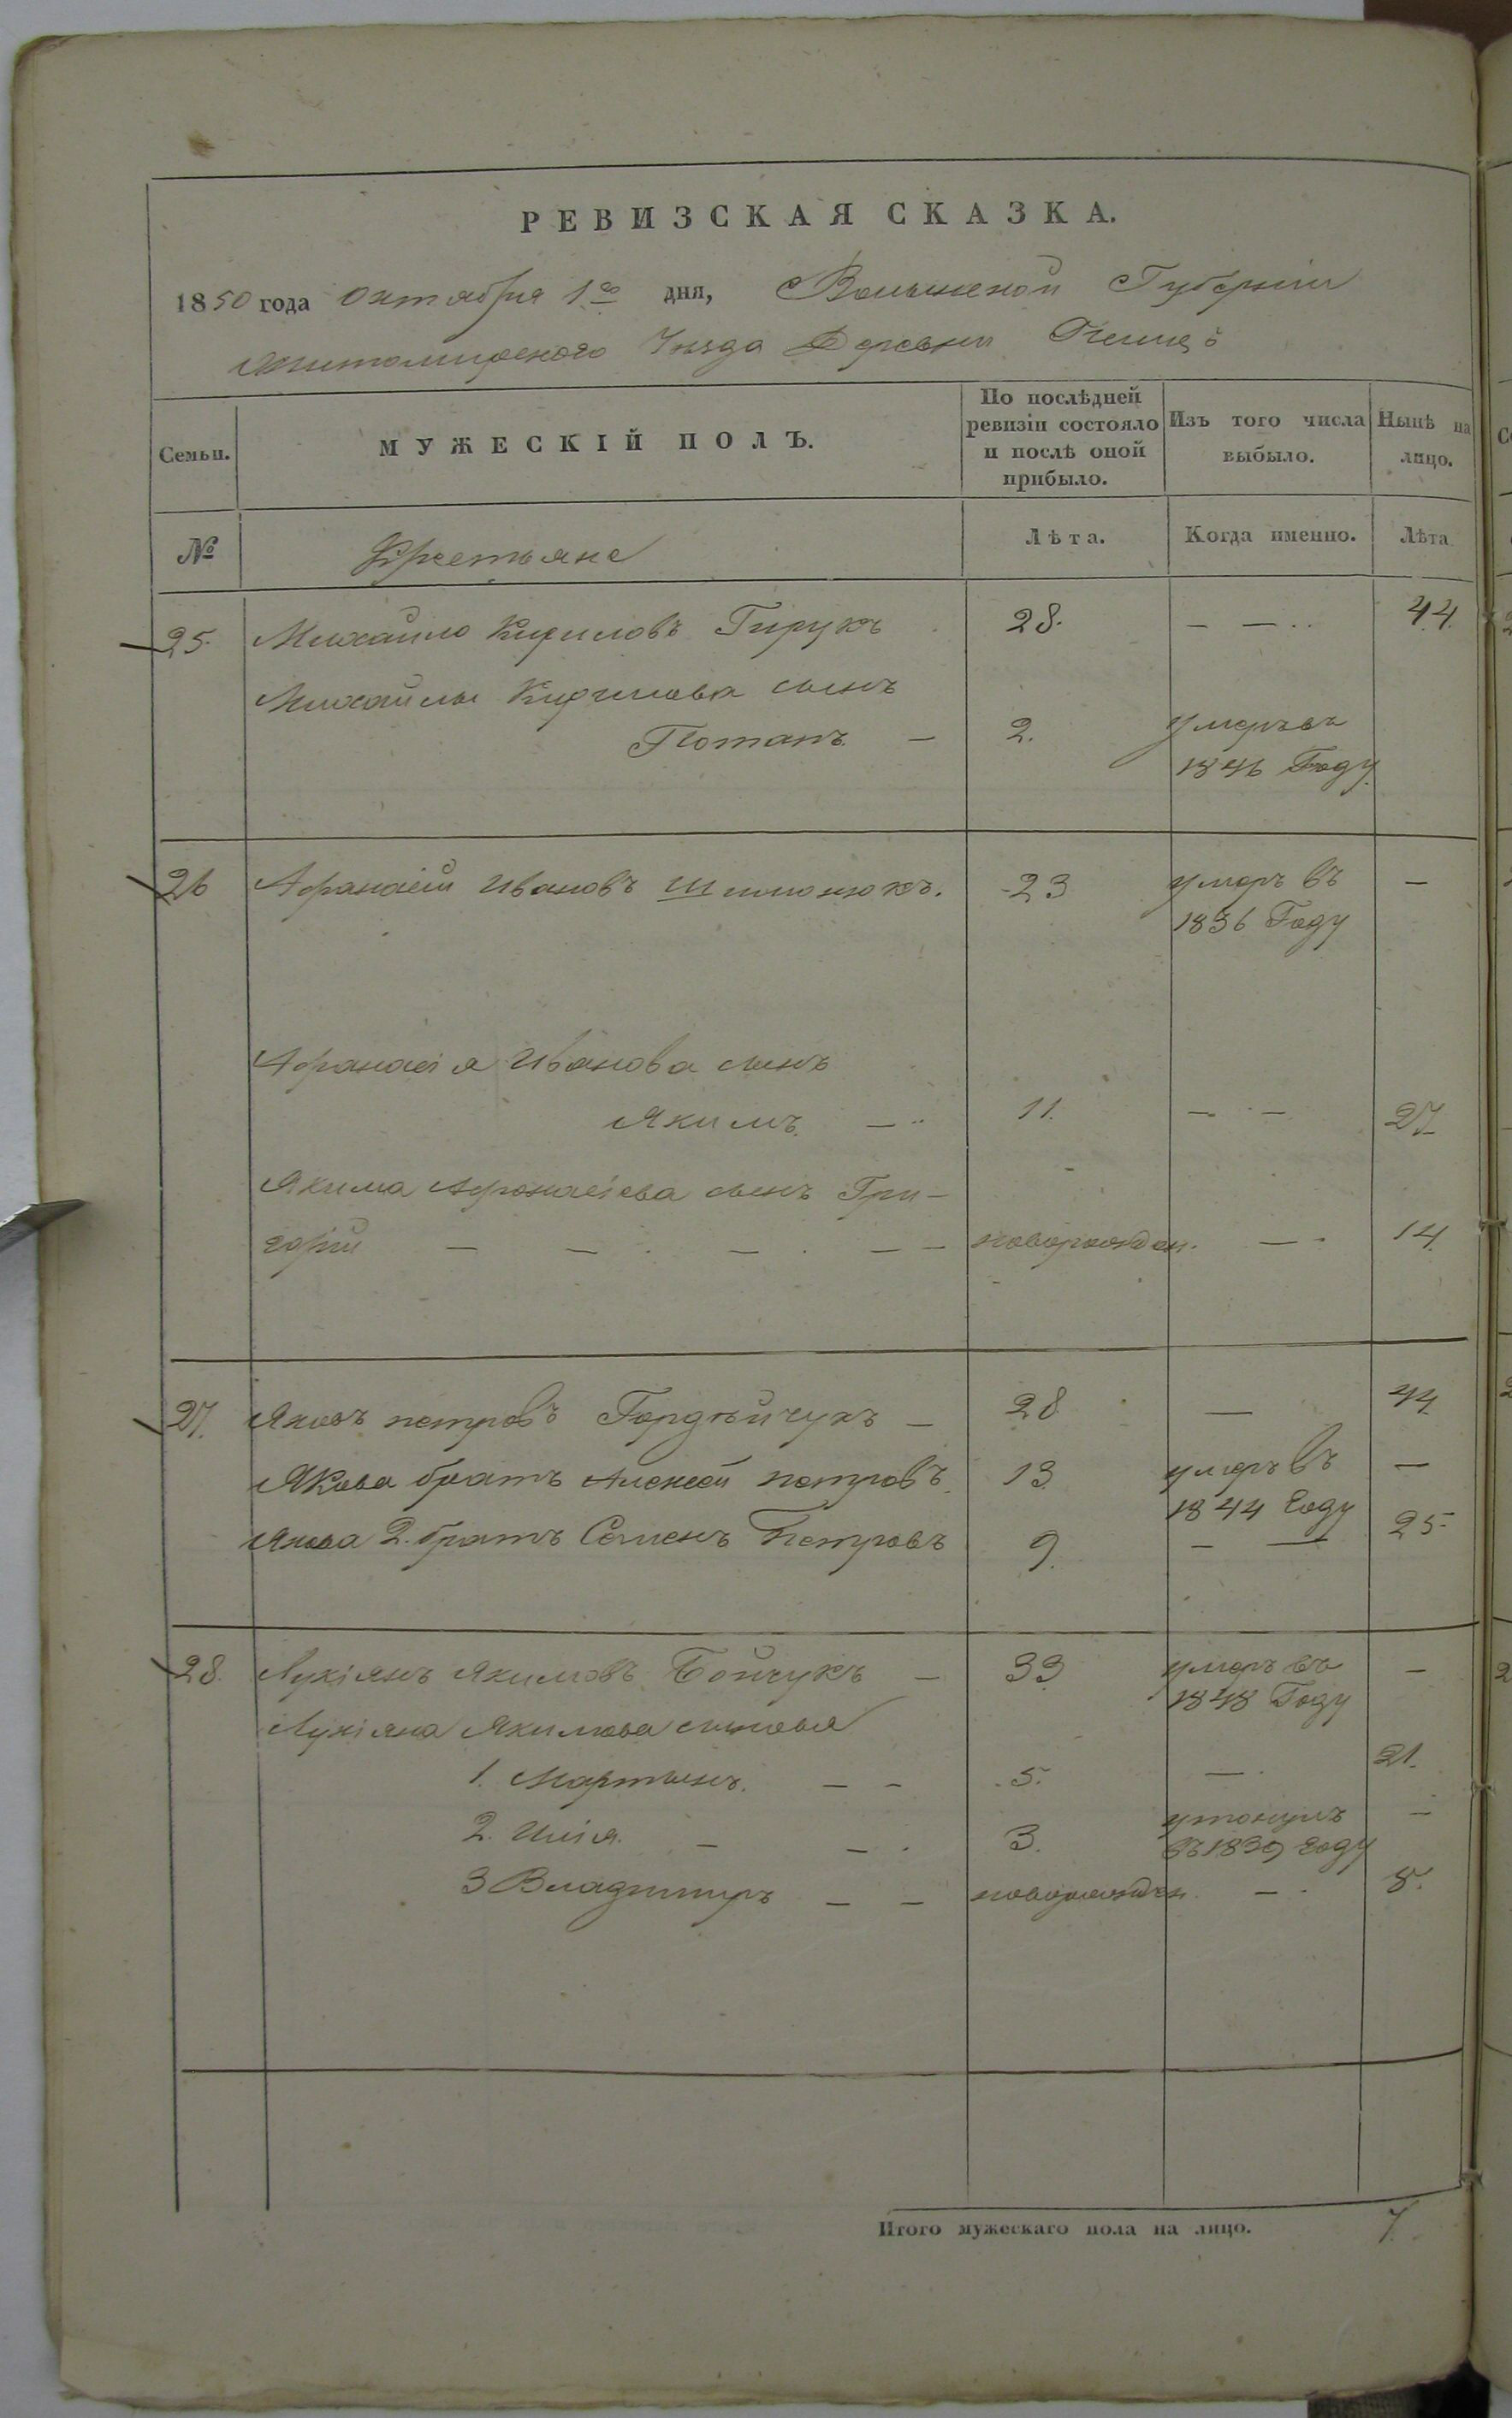 РЕВИЗСКАЯ СКАЗКА.
1850 года Октября 1го дня, Волынской Губерніи
Житомирского Уѣзда Деревни
Семьи.
МУЖЕСКІЙ ПОЛЪ.
По послѣдней ревизіи состояло и послѣ оной прибыло.
Изъ того числа выбыло.
Нынѣ на лицо.
№ Крестьяне Лѣта. Когда именно. Лѣта
25. Михайло Кириловъ Гирукъ 28. — — .. 44.
Михайлы Кирилова сынъ
Потапъ. — 2. умеръ въ
1846 Году.
26 Афанасій Ивановъ Шимонюкъ. 23 умеръ въ —
1836 Году
Афанасія Иванова сынъ
Якимъ. — .. 11. — — 27
Якима Афонасіева сынъ Гри-
горій — — . — . — — новорожден. — . 14.
27. Яковъ петровъ Гордѣйчукъ — 28 — 44.
Якова братъ Алексей петровъ. 13. умеръ въ —
1844 году
Якова 2. братъ Семенъ Петровъ 9. — — 25.
28. Лукіянъ Якимовъ Бойчукъ — 33. умеръ въ —
1848 Году
Лукіяна Якимова сыновья
1. Мартынъ. — — 5. — . 21.
2. Илія. — — . 3. утонулъ —
въ 1839 году
3 Владимиръ — — новорожден. — . 8.
Итого мужескаго пола на лицо. 7